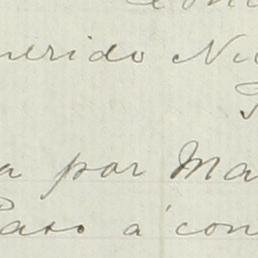 uerido Ni
a por Ma
Paso á con